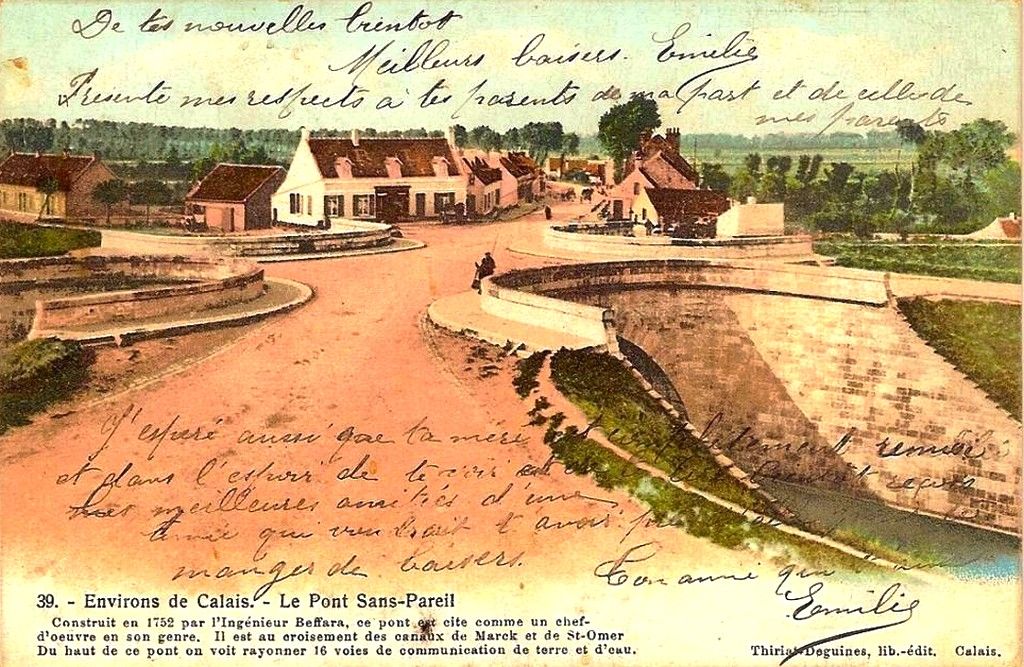 De tes nouvelles bientot
Meilleurs baisers. Emilie
Presente mes respects à tes parents de ma part et de celle de
mes parents
J'espère aussi que ta mère est complètement remise
et dans l'espoir de te voir
mes meilleures amitiés d'une
amie qui voudrait t'avoir
manger de baisers.
Ton amie qui t'aime
Emilie
39. - Environs de Calais. - Le Pont Sans-Pareil
Construit en 1752 par l'Ingénieur Beffara, ce pont est cite comme un chef-
d'oeuvre en son genre. Il est au croisement des canaux de Marck et de St-Omer
Du haut de ce pont on voit rayonner 16 voies de communication de terre et d'eau.
Thiriat-Deguines, lib.-édit. Calais.